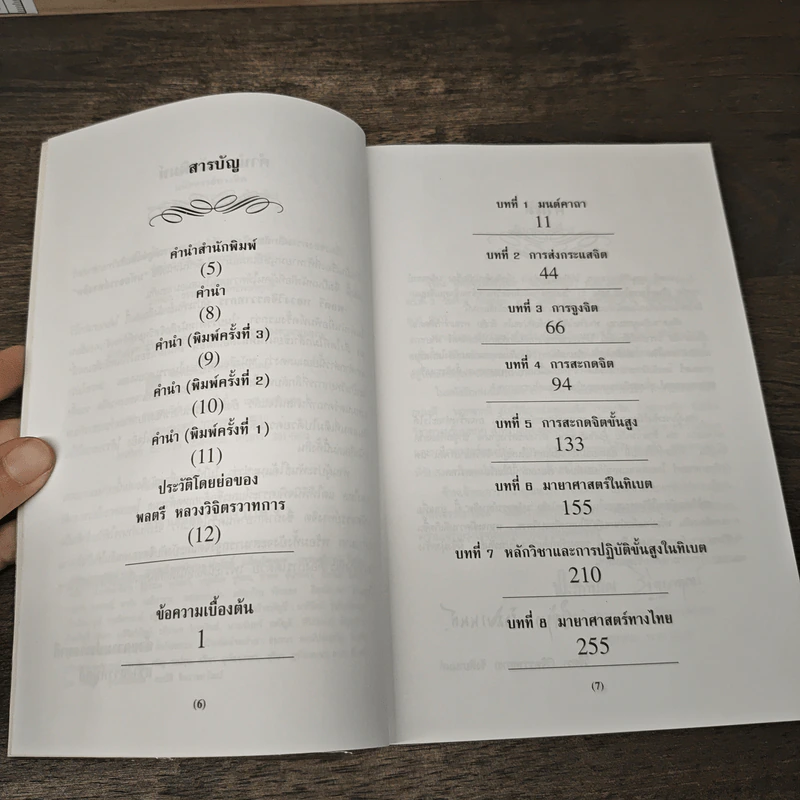 สารบัญ
คำนำสำนักพิมพ์
(5)
คำนำ
(8)
คำนำ (พิมพ์ครั้งที่ 3)
(9)
คำนำ (พิมพ์ครั้งที่ 2)
(10)
คำนำ (พิมพ์ครั้งที่ 1)
(11)
ประวัติโดยย่อของ
พลตรี หลวงวิจิตรวาทการ
(12)
ข้อความเบื้องต้น
1
(6)
บทที่ 1 มนต์คาถา
11
บทที่ 2 การส่งกระแสจิต
44
บทที่ 3 การจูงจิต
66
บทที่ 4 การสะกดจิต
94
บทที่ 5 การสะกดจิตขั้นสูง
133
บทที่ 6 มายาศาสตร์ในทิเบต
155
บทที่ 7 หลักวิชาและการปฏิบัติขั้นสูงในทิเบต
210
บทที่ 8 มายาศาสตร์ทางไทย
255
(7)